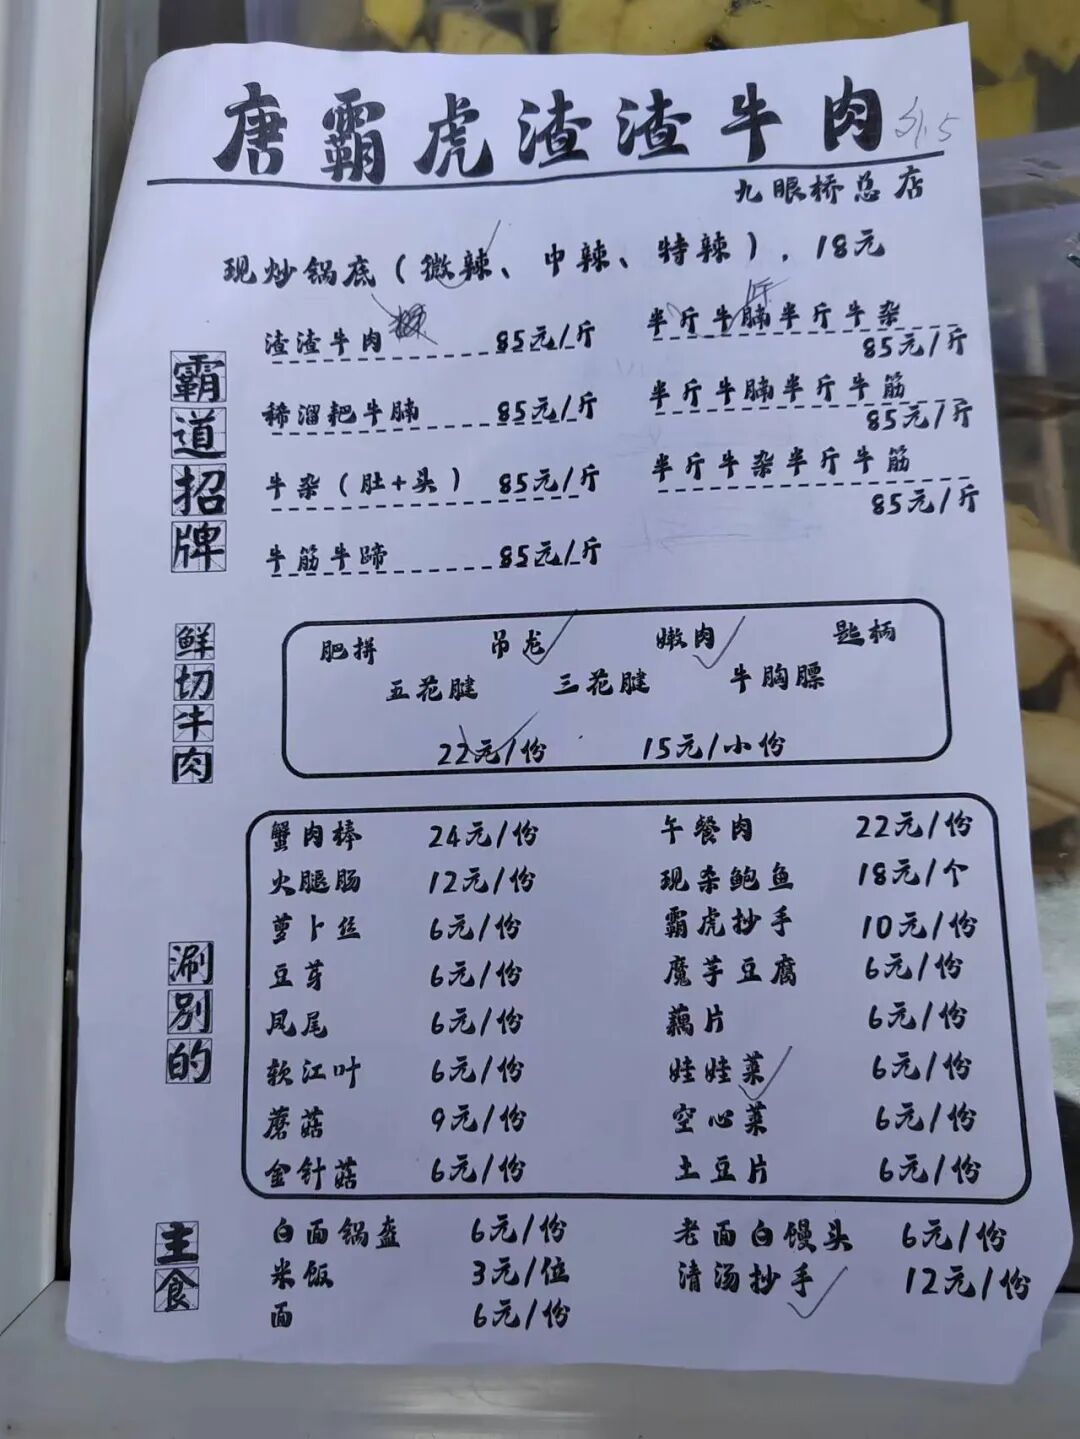 唐霸虎渣渣牛肉
九眼桥总店
现炒锅底（微辣、中辣、特辣），18元
霸道招牌
渣渣牛肉 85元/斤
半斤牛腩半斤牛杂
85元/斤
稀溜耙牛腩 85元/斤
半斤牛腩半斤牛筋
85元/斤
牛杂（肚+头） 85元/斤
半斤牛杂半斤牛筋
85元/斤
牛筋牛蹄 85元/斤
鲜切牛肉
肥拼 吊龙 嫩肉 匙柄
五花腱 三花腱 牛胸膘
22元/份 15元/小份
涮别的
蟹肉棒 24元/份 午餐肉 22元/份
火腿肠 12元/份 现杀鲍鱼 18元/个
萝卜丝 6元/份 霸虎抄手 10元/份
豆芽 6元/份 魔芋豆腐 6元/份
凤尾 6元/份 藕片 6元/份
软江叶 6元/份 娃娃菜 6元/份
蘑菇 9元/份 空心菜 6元/份
金针菇 6元/份 土豆片 6元/份
主食
白面锅盔 6元/份 老面白馒头 6元/份
米饭 3元/位 清汤抄手 12元/份
面 6元/份